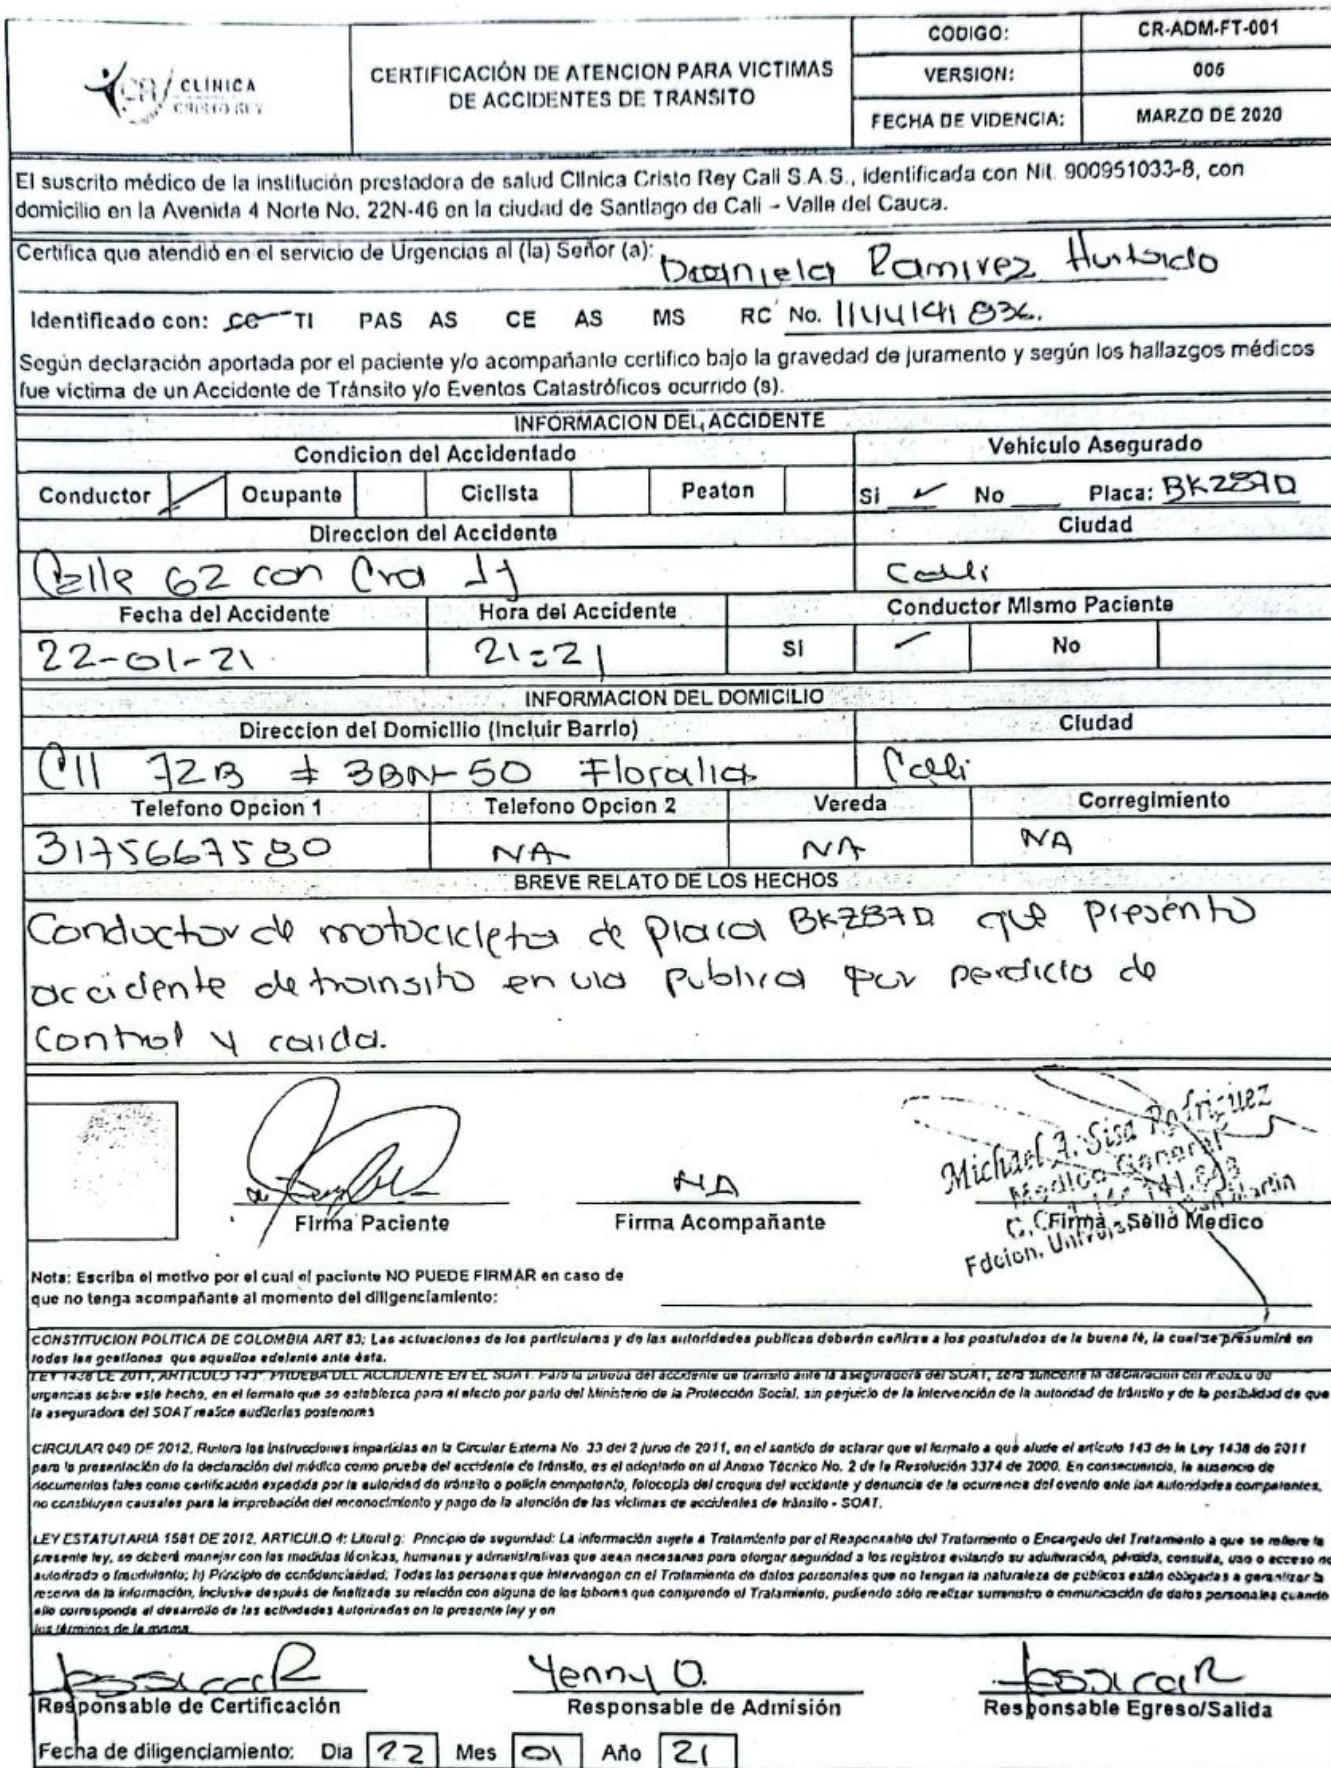 CLÍNICA
CRISTO REY
CERTIFICACIÓN DE ATENCION PARA VICTIMAS
DE ACCIDENTES DE TRANSITO
CODIGO: CR-ADM-FT-001
VERSION: 005
FECHA DE VIDENCIA: MARZO DE 2020
El suscrito médico de la institución prestadora de salud Clínica Cristo Rey Cali S.A.S., identificada con Nit. 900951033-8, con
domicilio en la Avenida 4 Norte No. 22N-46 en la ciudad de Santiago de Cali – Valle del Cauca.
Certifica que atendió en el servicio de Urgencias al (la) Señor (a): Daniela Ramirez Hurtado
Identificado con: CC TI PAS AS CE AS MS RC No. 1144141836.
Según declaración aportada por el paciente y/o acompañante certifico bajo la gravedad de juramento y según los hallazgos médicos
fue victima de un Accidente de Tránsito y/o Eventos Catastróficos ocurrido (s).
INFORMACION DEL ACCIDENTE
Condicion del Accidentado Vehiculo Asegurado
Conductor Ocupante Ciclista Peaton Si No Placa: BKZ87D
Direccion del Accidente Ciudad
Calle 62 con Cra 1J Cali
Fecha del Accidente Hora del Accidente Conductor Mismo Paciente
22-01-21 21:21 SI No
INFORMACION DEL DOMICILIO
Direccion del Domicilio (Incluir Barrio) Ciudad
Cll 72B # 3BN-50 Floralia Cali
Telefono Opcion 1 Telefono Opcion 2 Vereda Corregimiento
3175667580 NA NA NA
BREVE RELATO DE LOS HECHOS
Conductor de motocicleta de placa BKZ87D que presento
accidente de transito en via publica por perdida de
control y caida.
Michael A. Sisa Rodriguez
Medico General
NA
Firma Paciente Firma Acompañante Firma Sello Medico
Nota: Escriba el motivo por el cual el paciente NO PUEDE FIRMAR en caso de
que no tenga acompañante al momento del diligenciamiento:
CONSTITUCION POLITICA DE COLOMBIA ART 83; Las actuaciones de los particulares y de las autoridades publicas deberán ceñirse a los postulados de la buena fé, la cual se presumirá en
todas las gestiones que aquellos adelante ante ésta.
LEY 1438 DE 2011, ARTICULO 143° PRUEBA DEL ACCIDENTE EN EL SOAT. Para la prueba del accidente de tránsito ante la aseguradora del SOAT, será suficiente la declaración del médico de
urgencias sobre este hecho, en el formato que se establezca para el efecto por parte del Ministerio de la Protección Social, sin perjuicio de la intervención de la autoridad de tránsito y de la posibilidad de que
la aseguradora del SOAT realice auditorías posteriores
CIRCULAR 040 DE 2012. Reitera las instrucciones impartidas en la Circular Externa No. 33 del 2 junio de 2011, en el sentido de aclarar que el formato a que alude el artículo 143 de la Ley 1438 de 2011
para la presentación de la declaración del médico como prueba del accidente de tránsito, es el adoptado en al Anexo Técnico No. 2 de la Resolución 3374 de 2000. En consecuencia, la ausencia de
documentos tales como certificación expedida por la autoridad de tránsito o policía competente, fotocopia del croquis del accidente y denuncia de la ocurrencia del evento ante las Autoridades competentes,
no constituyen causales para la improbación del reconocimiento y pago de la atención de las víctimas de accidentes de tránsito - SOAT.
LEY ESTATUTARIA 1581 DE 2012, ARTICULO 4: Literal g: Principio de seguridad: La información sujeta a Tratamiento por el Responsable del Tratamiento o Encargado del Tratamiento a que se refiere la
presente ley, se deberá manejar con las medidas técnicas, humanas y administrativas que sean necesarias para otorgar seguridad a los registros evitando su adulteración, pérdida, consulta, uso o acceso no
autorizado o fraudulento; h) Principio de confidencialidad: Todas las personas que intervengan en el Tratamiento de datos personales que no tengan la naturaleza de públicos están obligadas a garantizar la
reserva de la información, inclusive después de finalizada su relación con alguna de las labores que comprende el Tratamiento, pudiendo sólo realizar suministro o comunicación de datos personales cuando
ello corresponda al desarrollo de las actividades autorizadas en la presente ley y en
los términos de la misma
JessicaR Yenny O. JessicaR
Responsable de Certificación Responsable de Admisión Responsable Egreso/Salida
Fecha de diligenciamiento: Dia 22 Mes 01 Año 21